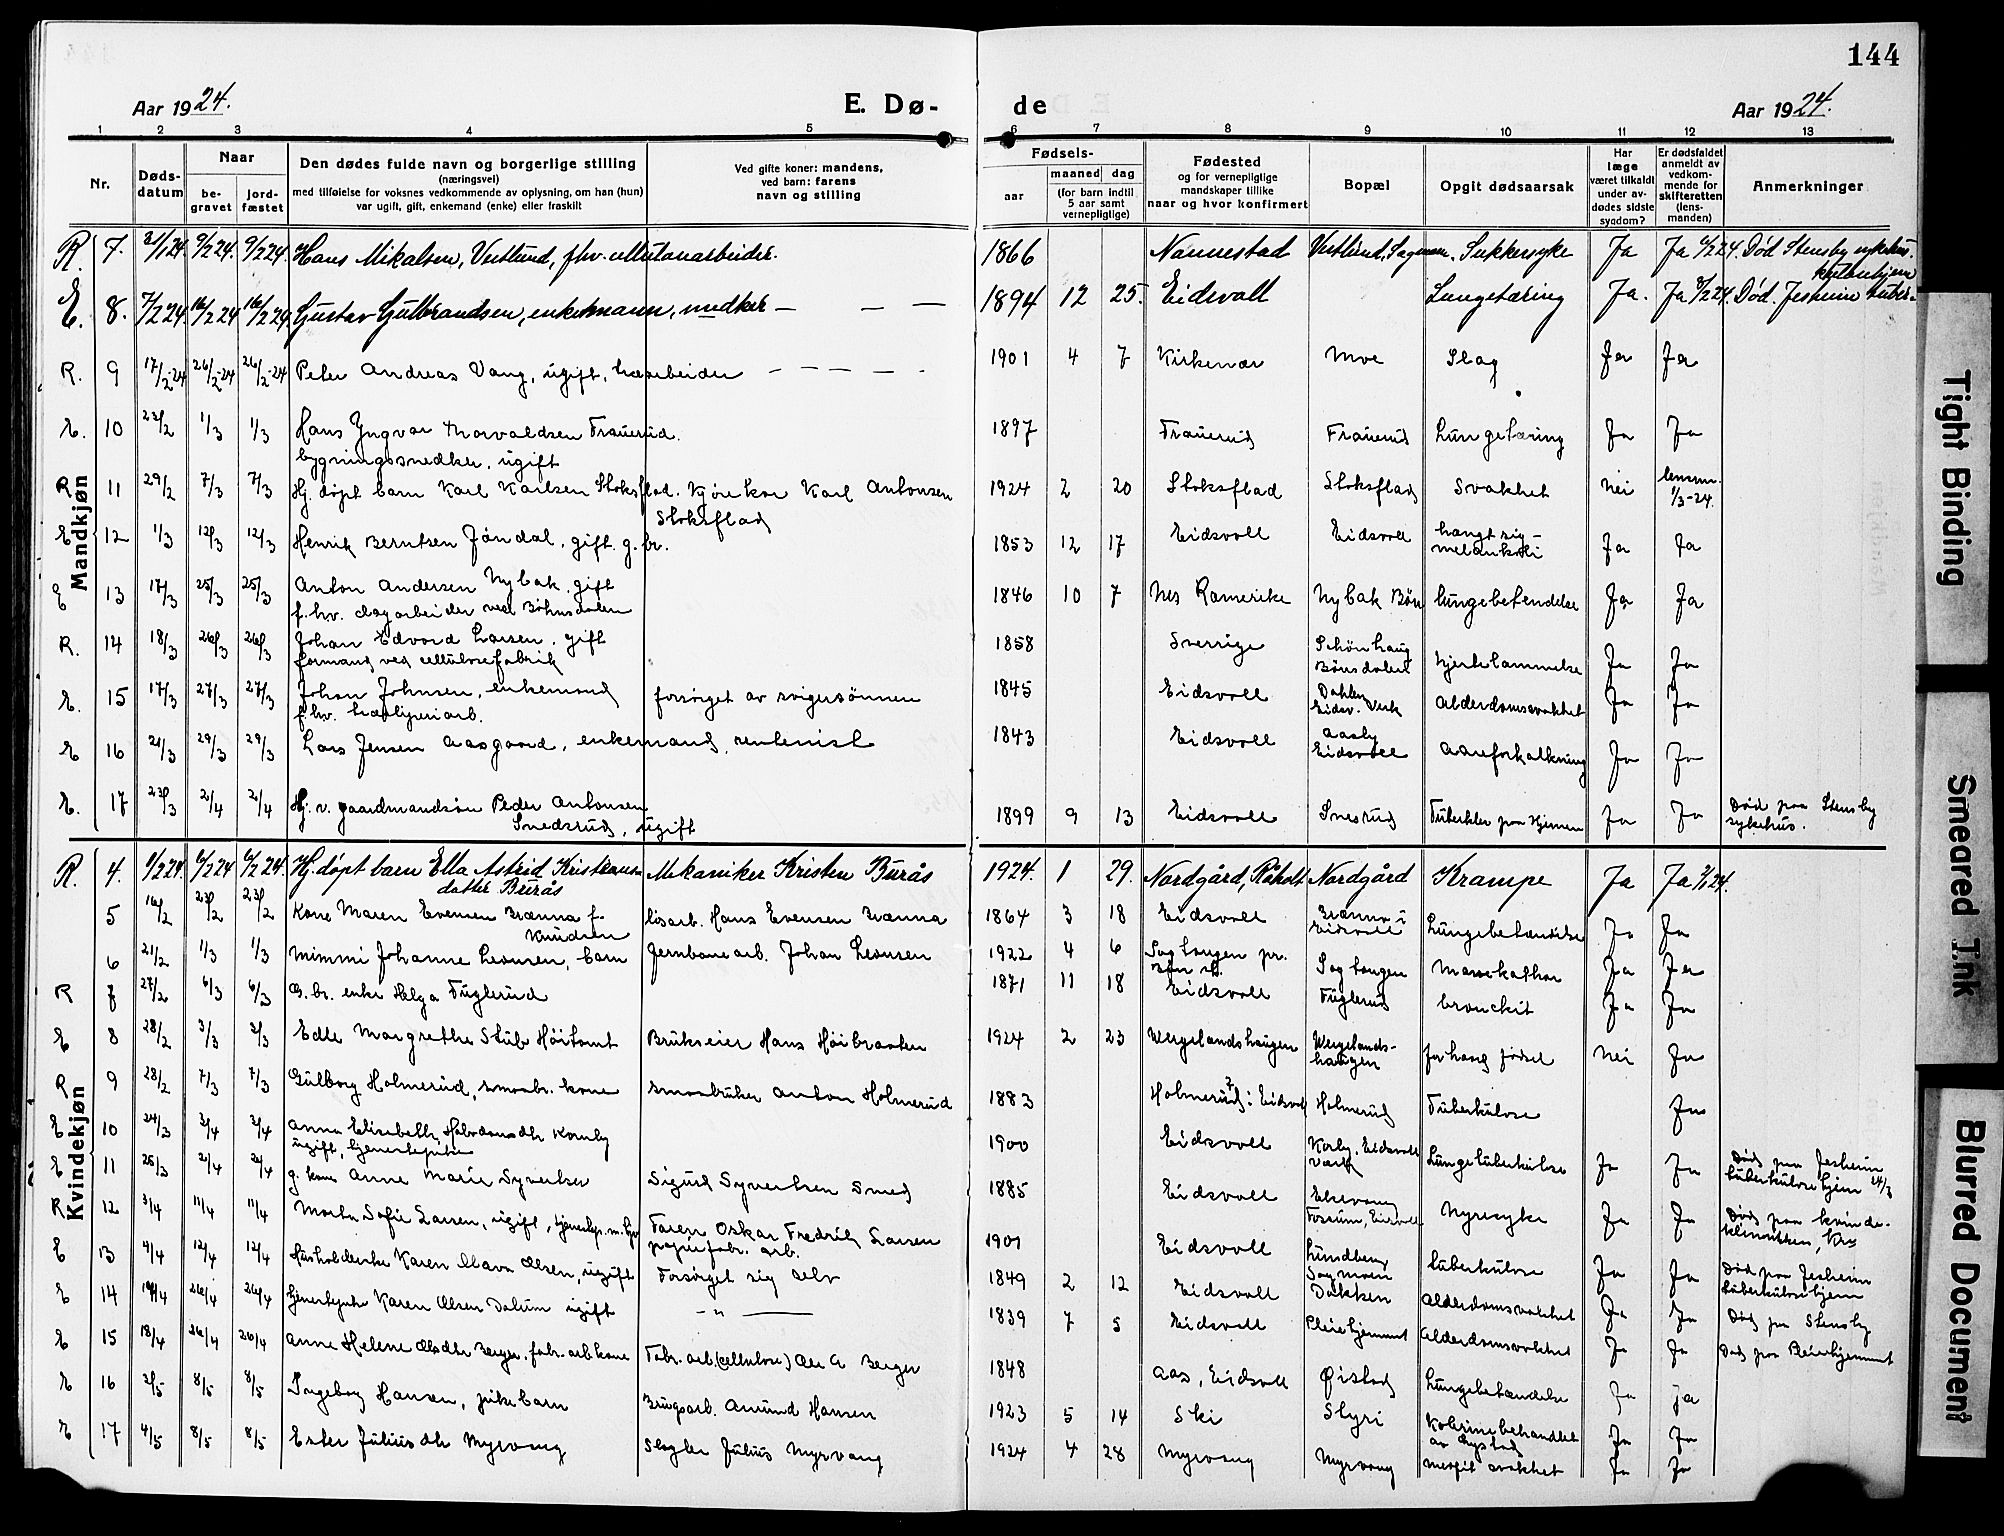 144
Aar 1924.
E. Dø-
de
Aar 1924.
1 2 3 4 5 6 7 8 9 10 11 12 13
Nr.
Døds-
datum
Naar
be-
gravet
jord-
fæstet
Den dødes fulde navn og borgerlige stilling
(næringsvei)
med tilføielse for voksnes vedkommende av oplysning, om han (hun)
var ugift, gift, enkemand (enke) eller fraskilt
Ved gifte koner: mandens,
ved barn: farens
navn og stilling
Fødsels-
aar
maaned dag
(for barn indtil
5 aar samt
vernepligtige)
Fødested
og for vernepligtige
mandskaper tillike
naar og hvor konfirmert
Bopæl
Opgit dødsaarsak
Har
læge
været tilkaldt
under av-
dødes sidste
sygdom?
Er dødsfaldet
anmeldt av
vedkom-
mende for
skifteretten
(lens-
manden)
Anmerkninger
Mandkjøn
R. 7. 31/1 24. 9/2 24. 9/2 24. Hans Mikalsen, Vestlund, fhv. cellulosearbeider. 1866 Nannestad Vestlund, Sagmoen. Sukkersyke Ja Ja Død Stensby sykehus.
E. 8. 7/2 24. 16/2 24 16/2 24 Gustav Gulbrandsen, enkemann, snedker — — — 1894 12 25. Eidsvoll Lungetæring Ja. Ja 8/2 24. Død. Jesheim tuber-
kulosehjem
R. 9 17/2-24 26/2-24 26/2-24 Peter Andreas Vang, ugift, træarbeider — — — — 1901 4 7 Kirkenær Moe Slag Ja Ja
E. 10 23/2 1/3 1/3 Hans Yngvar Thorvaldsen Trauerud. 1897 Trauerud Trauerud Lungetæring Ja Ja
bygningssnedker, ugift
R 11 29/2 7/3 7/3 Hj. døpt barn Karl Karlsen Stoksflad. Kjørekar Karl Antonsen 1924 2 20 Stoksflad Stoksflad Svakhet Nei lensm.
Stoksflad 1/3-24.
E 12 1/3 12/3 12/3 Henrik Berntsen Jøndal, gift g.br. 1853 12 17 Eidsvoll Eidsvoll hængt sig – Ja Ja
melankoli
E 13 17/3 25/3 25/3 Anton Andersen Nybak, gift 1846 10 7 Nes Romerike Nybak Bøn lungebetendelse Ja Ja
f.hv. dagarbeider ved Bøhnsdalen
R. 14 18/3 26/3 26/3 Johan Edvard Larsen, gift 1858 Sverrige Schönhaug hjertelammelse Ja Ja
formand ved cellulosefabrik Bønsdalen
E. 15 17/3 27/3 27/3 Johan Johnsen, enkemand forsørget av svigersønnen 1845 Eidsvoll Dahlen Alderdomssvakhet Ja Ja
f.hv. træsliperiarb. Eidsv. Verk
E 16 21/3 29/3 29/3 Lars Jensen Aasgaard, enkemand, rentenist 1843 Eidsvoll Aasby Aareforkalkning Ja Ja
Eidsvoll
E. 17 23/3 2/4 2/4 Hj. v. gaardmandsøn Peder Antonsen 1899 9 13 Eidsvoll Snesrud Tuberkler paa hjernen Ja Ja Død paa Stensby
Snedsrud, ugift sykehus.
Kvindekjøn
R. 4. 1/2 24. 6/2 24 6/2 24. Hj. døpt barn Ella Astrid Kristians- Mekaniker Kristen Burås 1924. 1 29. Nordgård, Råholt Nordgård Krampe Ja Ja
datter Burås
5 16/2 23/2 23/2 Kone Maren Evensen Brænna f. løsarb. Hans Evensen Brænna 1864 3 18 Eidsvoll Brænna i Lungebetændelse Ja Ja
Knudsen Eidsvoll
6 21/2 1/3 1/3 Mimmi Johanne Leonsen, barn Jernbanearb. Johan Leonsen 1922 4 6 Sagtangen pr. Sagtangen Mavekathar Ja Ja
Bøn st.
R 7 27/2 6/3 6/3 G.br. enke Helga Tuglerud 1871 11 18 Eidsvoll Tuglerud bronckit Ja Ja
E 8 28/2 3/3 3/3 Edle Margrethe Stub Høitomt Brukseier Hans Høibraaten 1924 2 23 Wergelandshaugen Wergelands- for haard fødsel Nei Ja
haugen
R 9 28/2 7/3 7/3 Gulborg Holmerud, smaabr. kone smaabruker Anton Holmerud 1883 Holmerud i Eidsvoll Holmerud Tuberkulose Ja
E 10 24/3 3/4 3/4 Anna Elisabeth Halvdansdtr Kornby 1900 Eidsvoll Korby, Eidsvoll Lungetuberkulose Ja Ja Død paa Jesheim
ugift, tjenestepike Værk tuberkulosehjem 24/3
E 11 25/3 2/4 2/4 g. kone Anne Marie Syvertsen Sigurd Syvertsen Smed 1885 Eidsvoll Nyresyke Ja Ja Død paa kvinde-
Fossum, Eidsvoll klinikken, Kra
R 12 3/4 11/4 11/4 Marta Sofie Larsen, ugift, Faren Oskar Fredrik Larsen 1901 Eidsvoll Lundberg tuberkulose Ja Ja Død paa Jesheim
papirfabr. arb. Sagmoen tuberkulosehjem
E 13 4/4 12/4 12/4 Husholderske Karen Olava Olsen, ugift Forsørget sig selv 1849 2 12 Eidsvoll Bakken Alderdomssvakhet Ja Ja Død paa Stensby
E 14 19/4 26/4 26/4 tjenestepike Karen Olsen Dalum ugift – " – 1839 7 5 Eidsvoll Pleiehjemmet Alderdomssvakhet Ja Ja Død paa Pleiehjemmet
E 15 18/4 26/4 26/4 Anne Helene Olsdtr Berger, fabr. arb. kone Fabr. arb. (cellulose) Ole A Berger 1848 Aas, Eidsvoll Øistad Lungebetændelse Ja Ja
E 16 3/5 8/5 8/5 Ingeborg Hansen, pikebarn Brugsarb. Amund Hansen 1923 5 14 Ski Styri Kolerine behandlet Ja Ja
av Nystad
E 17 4/5 8/5 8/5 Ester Juliusdtr Myrvang Slagter Julius Myrvang 1924 4 28 Myrvang Myrvang medfødt svakhet Ja Ja
Tight Binding
Smeared Ink
Blurred Document